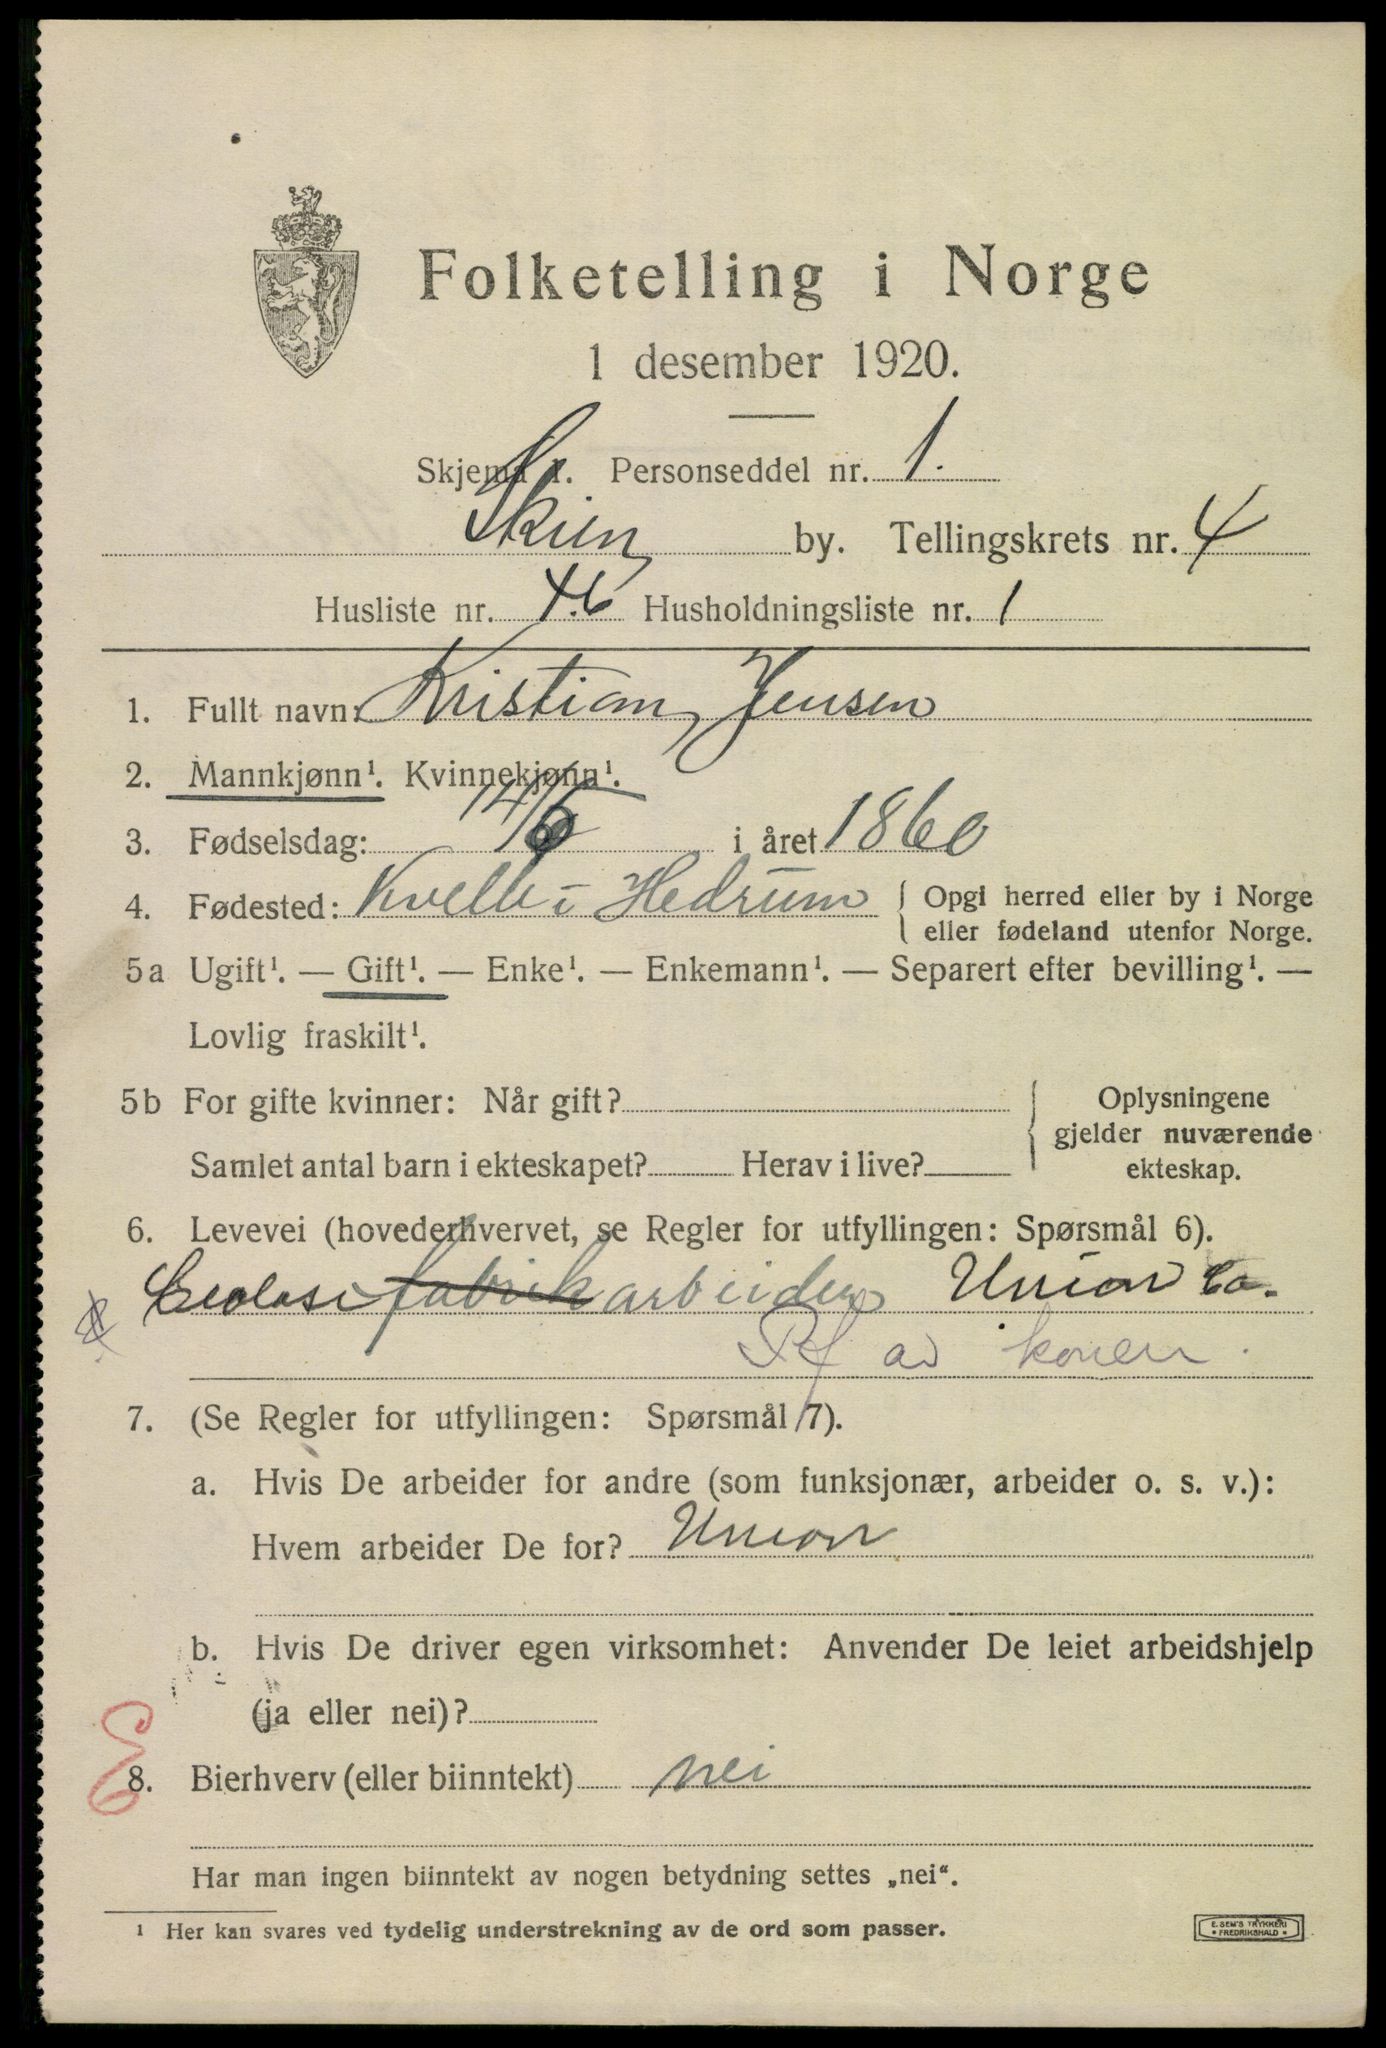 Folketelling i Norge
1 desember 1920.
Skjema 1. Personseddel nr. 1.
Skien by. Tellingskrets nr. 4
Husliste nr. 46 Husholdningsliste nr. 1
1. Fullt navn: Kristian Jensen
2. Mannkjønn¹. Kvinnekjønn¹.
3. Fødselsdag: 14/6 i året 1860
4. Fødested: Kvelle i Hedrum { Opgi herred eller by i Norge
eller fødeland utenfor Norge.
5a Ugift¹. — Gift¹. — Enke¹. — Enkemann¹. — Separert efter bevilling¹. —
Lovlig fraskilt¹.
5b For gifte kvinner: Når gift? { Oplysningene
gjelder nuværende
Samlet antal barn i ekteskapet? Herav i live? ekteskap.
6. Levevei (hovederhvervet, se Regler for utfyllingen: Spørsmål 6).
fabrikarbeider Union Co.
av konen.
7. (Se Regler for utfyllingen: Spørsmål 7).
a. Hvis De arbeider for andre (som funksjonær, arbeider o. s. v.):
Hvem arbeider De for? Union
b. Hvis De driver egen virksomhet: Anvender De leiet arbeidshjelp
(ja eller nei)?
8. Bierhverv (eller biinntekt) nei
Har man ingen biinntekt av nogen betydning settes „nei“.
¹ Her kan svares ved tydelig understrekning av de ord som passer.
E. SEM'S TRYKKERI
* FREDRIKSHALD *